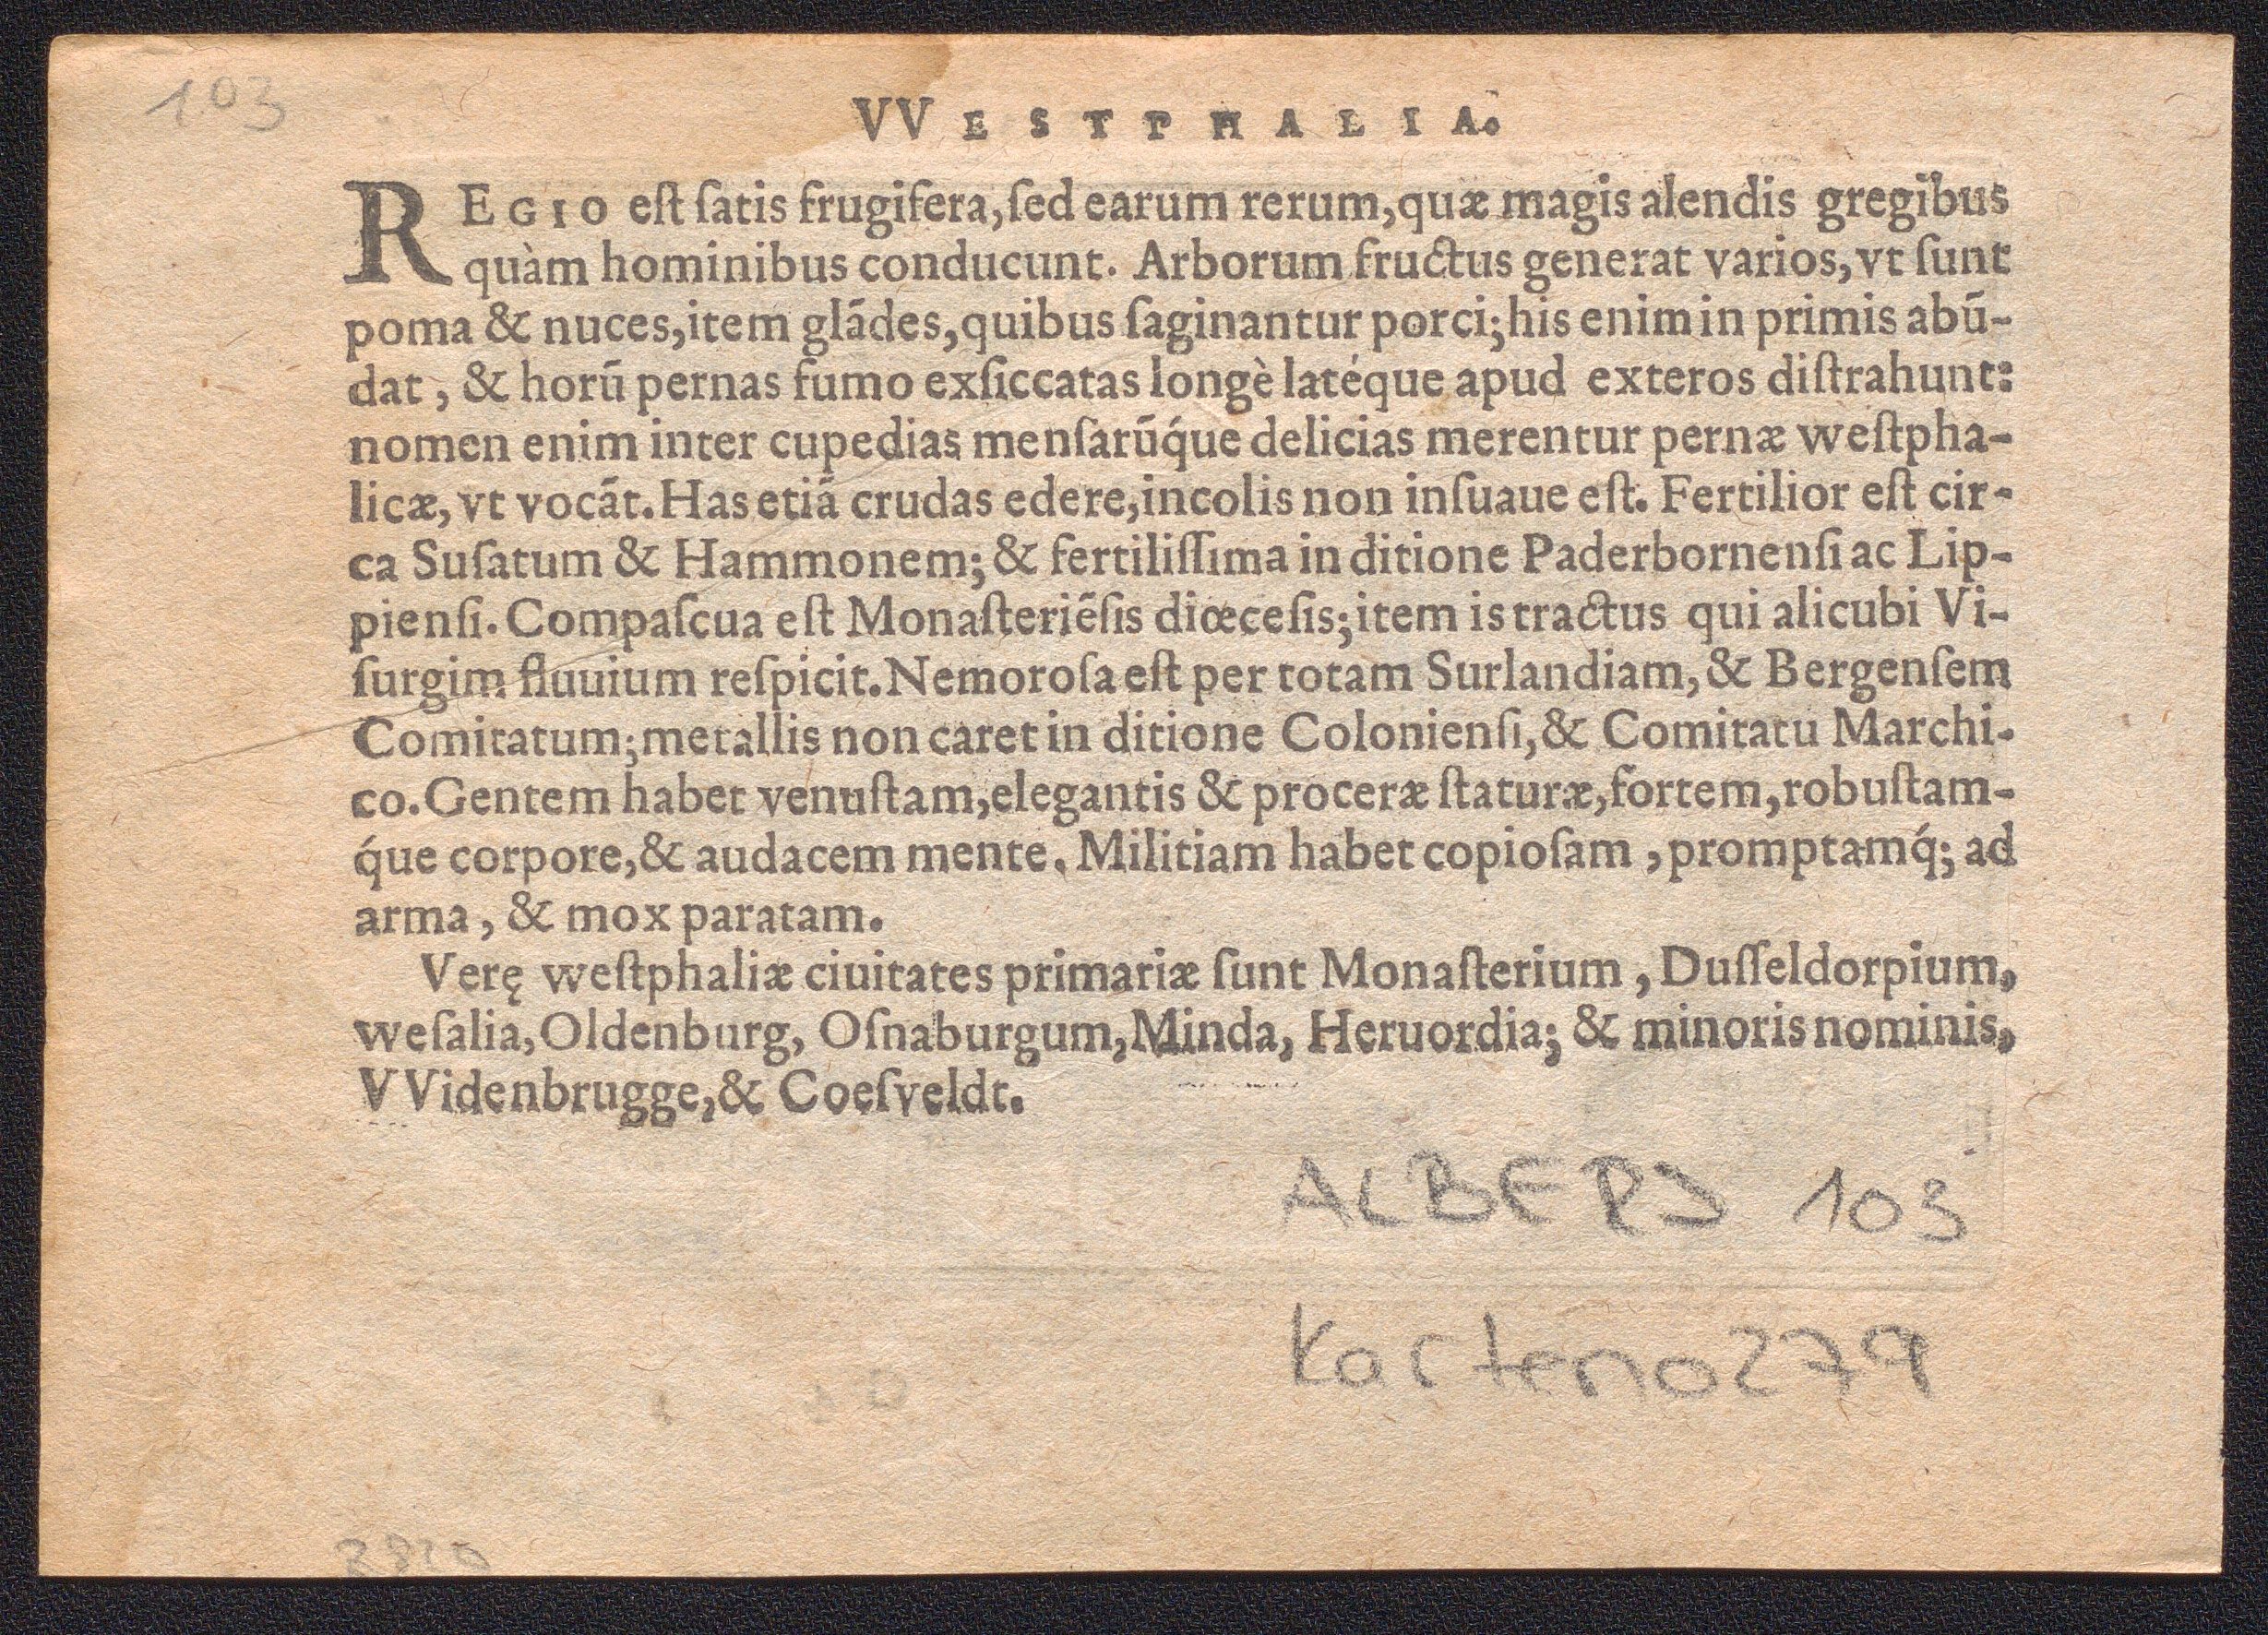 103
VVESTPHALIA.
REGIO est satis frugifera, sed earum rerum, quæ magis alendis gregibus
quàm hominibus conducunt. Arborum fructus generat varios, vt sunt
poma & nuces, item glādes, quibus saginantur porci; his enim in primis abū-
dat, & horū pernas fumo exsiccatas longè latéque apud exteros distrahunt:
nomen enim inter cupedias mensarūq́ue delicias merentur pernæ westpha-
licæ, vt vocāt. Has etiā crudas edere, incolis non insuaue est. Fertilior est cir-
ca Susatum & Hammonem; & fertilissima in ditione Paderbornensi ac Lip-
piensi. Compascua est Monasteriēsis diœcesis; item is tractus qui alicubi Vi-
surgim fluuium respicit. Nemorosa est per totam Surlandiam, & Bergensem
Comitatum; metallis non caret in ditione Coloniensi, & Comitatu Marchi-
co. Gentem habet venustam, elegantis & proceræ staturæ, fortem, robustam-
q́ue corpore, & audacem mente. Militiam habet copiosam, promptamq́; ad
arma, & mox paratam.
Verę westphaliæ ciuitates primariæ sunt Monasterium, Dusseldorpium,
wesalia, Oldenburg, Osnaburgum, Minda, Heruordia; & minoris nominis,
VVidenbrugge, & Coesveldt.
103